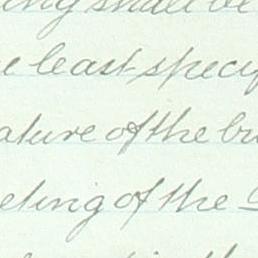 shall be
least specif
ature of the bu
eeting of the